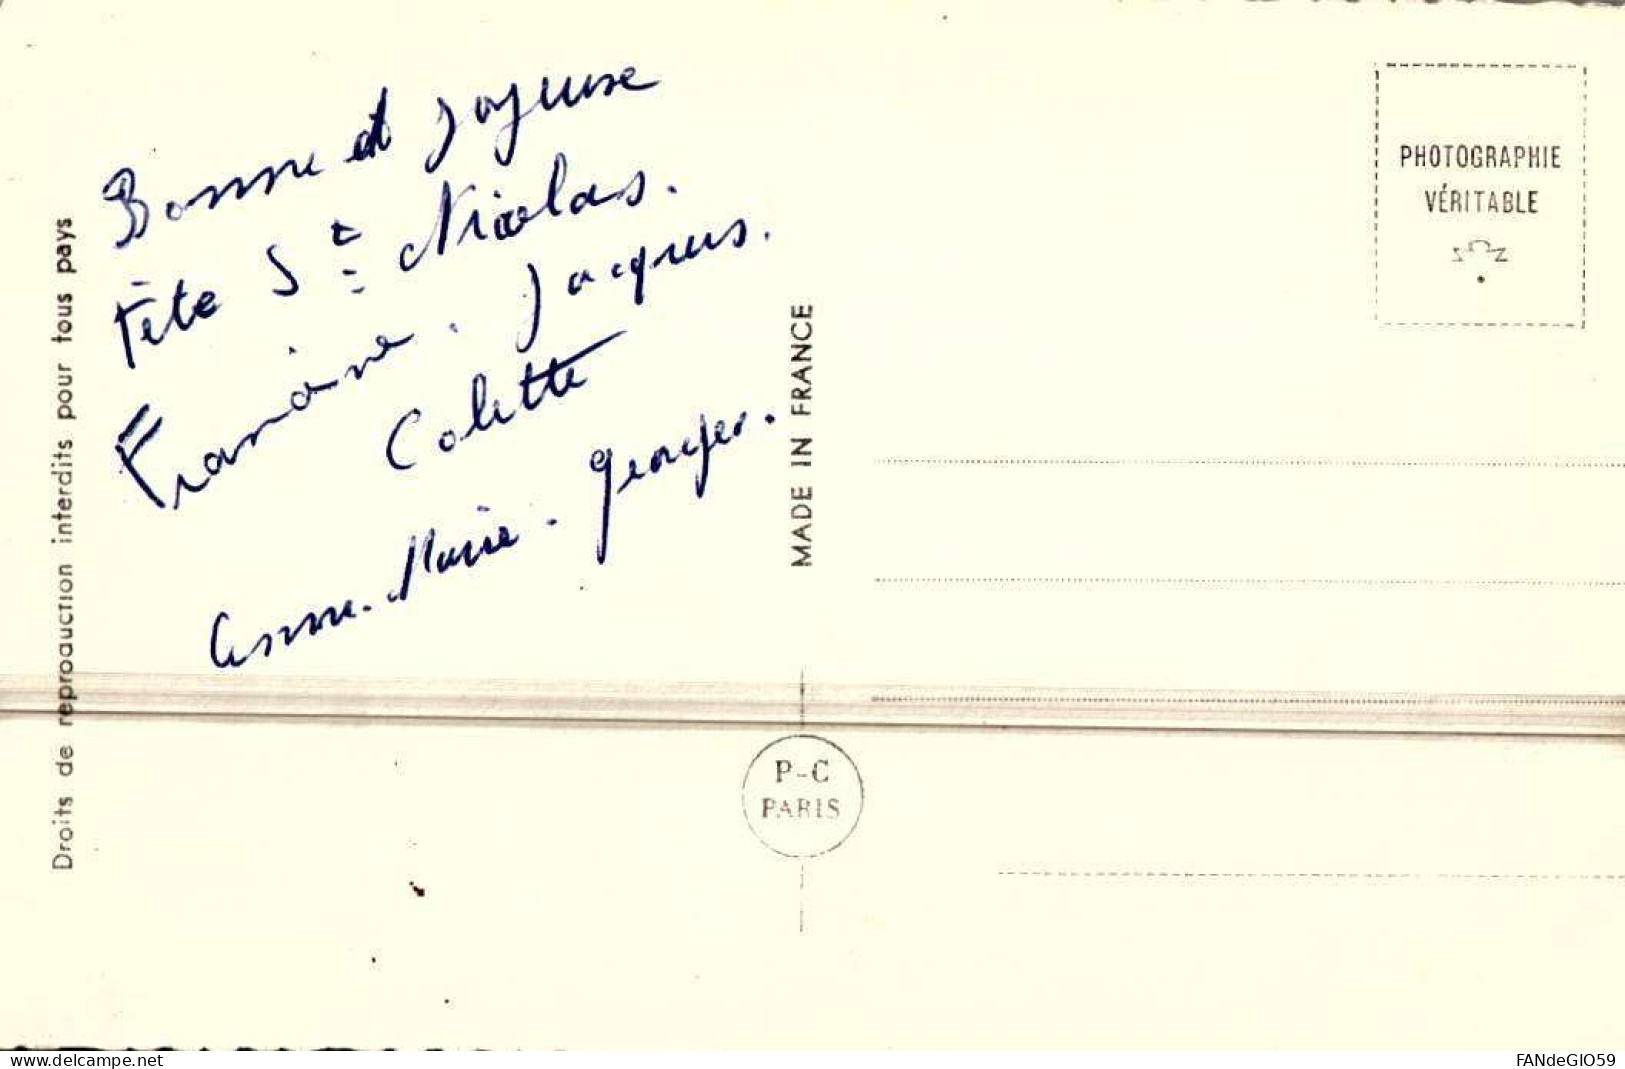 Bonne et Joyeuse
Fête St Nicolas.
Francine. Jacques.
Colette
Anne-Marie. Georges.
Droits de reproduction interdits pour tous pays
MADE IN FRANCE
P-C
PARIS
PHOTOGRAPHIE
VÉRITABLE
www.delcampe.net
FANdeGIO59